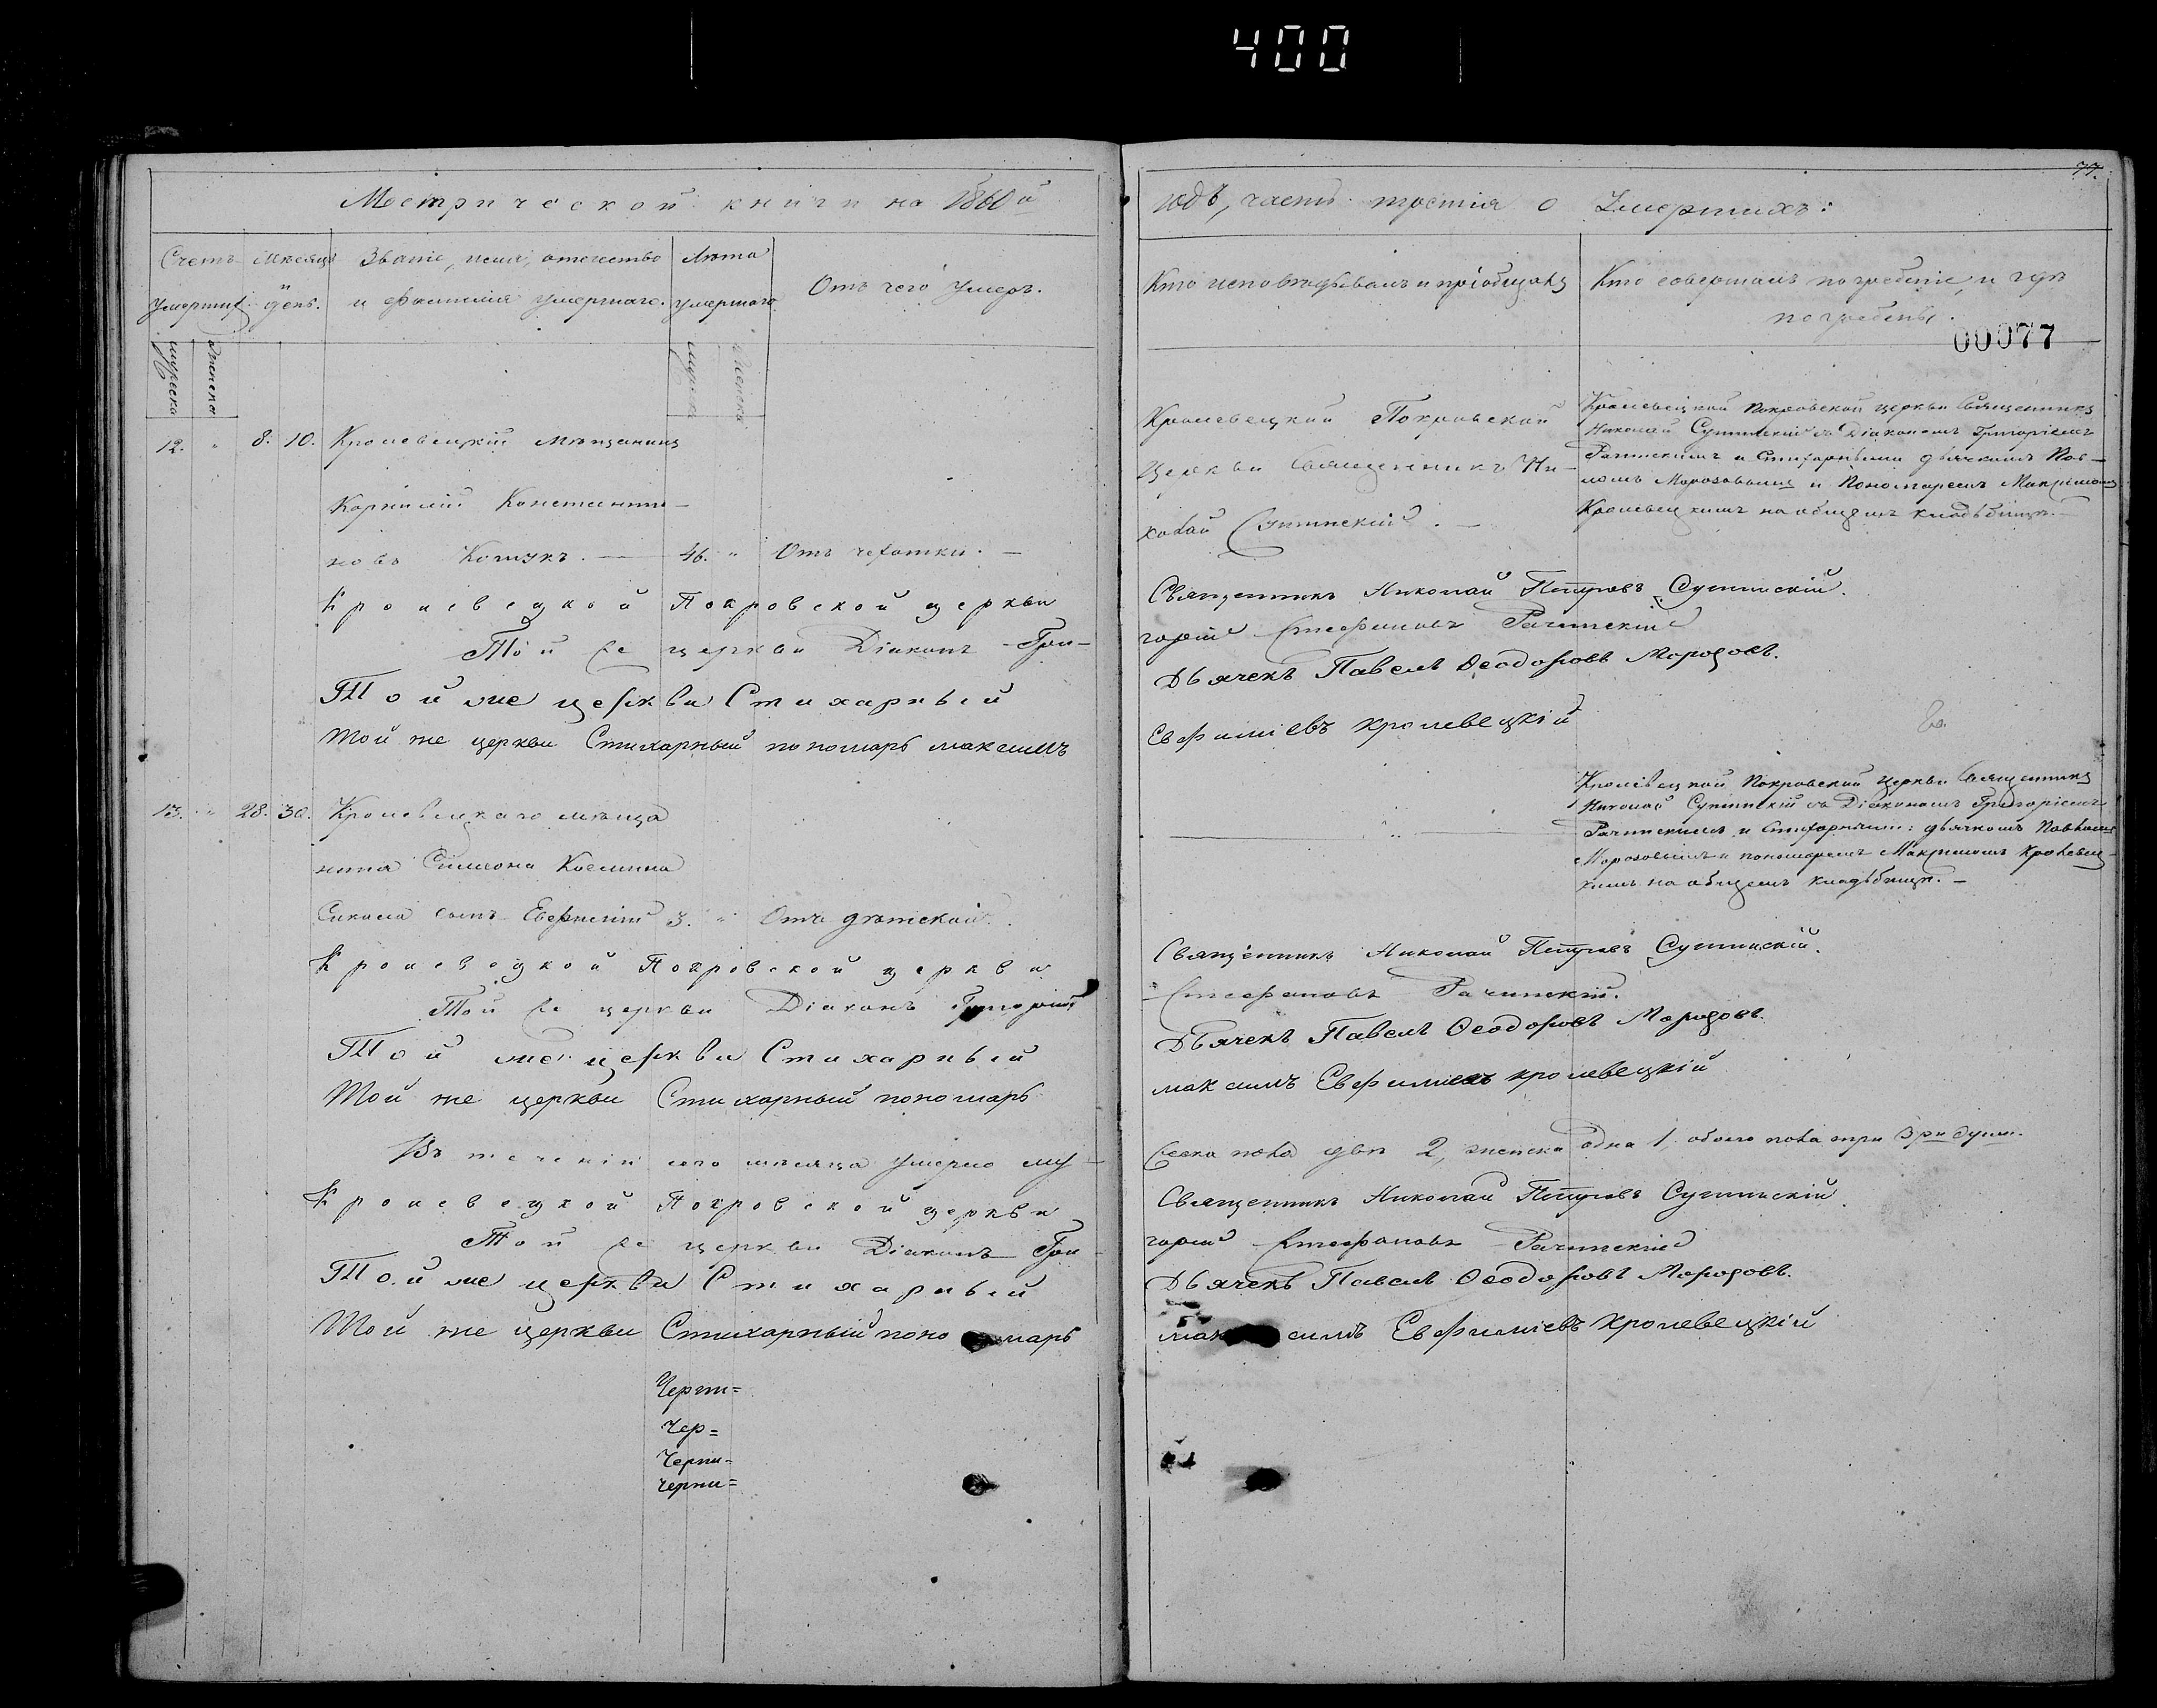 400
77.
Метрической книги на 1860й
годъ, часть третія о Умершихъ:
Счетъ умершихъ
Мѣсяцъ и день.
Званіе, имя, отечество и фамилія умершаго.
Лѣта умершаго
Отъ чего умеръ.
Кто исповѣдывалъ и пріобщалъ
Кто совершалъ погребеніе, и гдѣ погребены.
00077
мужеска
женска
мужеска
женска
12. " 8. 10. Кролевецкій мѣщанинъ
Корнилій Константи-
новъ 46. " Отъ чахотки. —
Кролевецкой Покровской
Церкви Священникъ Ни-
колай Сутинскій. —
Кролевецкой Покровской церкви Священникъ
Николай Сутинскій съ Діакономъ Григоріемъ
Рачинскимъ и Стихарными дьячкомъ Пав-
ломъ Морозовымъ и Пономаремъ Максимомъ
Кролевецкимъ на общемъ кладбищѣ. —
Кролевецкой Покровской церкви Священникъ Николай Петровъ Сутинскій.
Той же церкви Діаконъ Гри-горій Стефановъ Рачинскій
Той же церкви Стихарный Дьячекъ Павелъ Ѳеодоровъ Морозовъ.
Той же церкви Стихарный пономарь максимъ Евфиміевъ кролевецкій
13. " 28. 30. Кролевецкаго мѣща
нина Симеона Космина
сынъ Евфимій 3. " Отъ дѣтской.
Кролевецкой Покровской Церкви Священникъ
Николай Сутинскій съ Діакономъ Григоріемъ
Рачинскимъ и Стихарными: дьячкомъ Павломъ
Морозовымъ и пономаремъ Максимомъ Кролевец-
кимъ на общемъ кладбищѣ. —
Кролевецкой Покровской церкви Священникъ Николай Петровъ Сутинскій.
Той же церкви Діаконъ Григорій Стефановъ Рачинскій.
Той же церкви Стихарный Дьячекъ Павелъ Ѳеодоровъ Морозовъ.
Той же церкви Стихарный пономарь максимъ Евфиміевъ кролевецкій
Въ теченіи сего мѣсяца умерло му-жеска пола два 2, женска одна 1, обоего пола три 3 ри души.
Кролевецкой Покровской церкви Священникъ Николай Петровъ Сутинскій
Той же церкви Діаконъ Гри-горій Стефановъ Рачинскій
Той же церкви Стихарный Дьячекъ Павелъ Ѳеодоровъ Морозовъ.
Той же церкви Стихарный поно марь мак симъ Евфиміевъ кролевецкій
Черни=
Чер=
Черни=
черни=